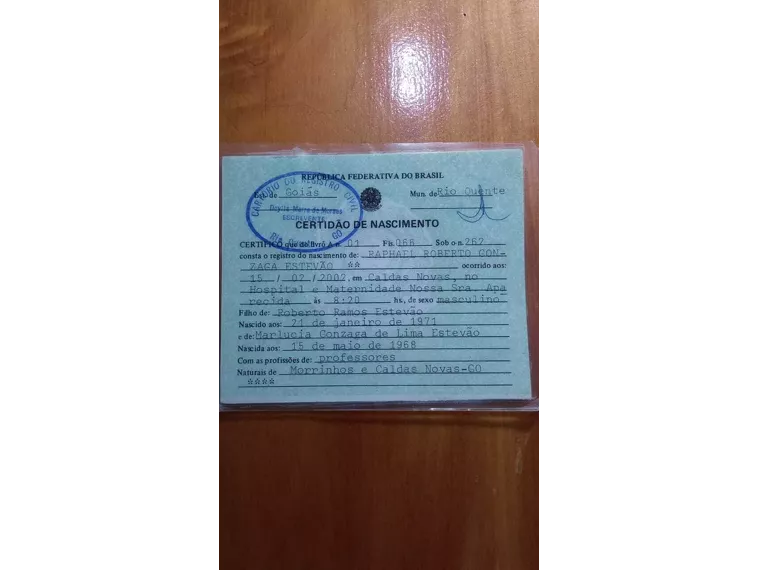 REPÚBLICA FEDERATIVA DO BRASIL
CARTÓRIO DO REGISTRO CIVIL
Est. de Goiás Mun. de Rio Quente
ESCREVENTE
GO
CERTIDÃO DE NASCIMENTO
CERTIFICO que do livro A n. 01 Fls. 066 Sob o n. 262
consta o registro do nascimento de: RAPHAEL ROBERTO GON-
ZAGA ESTEVÃO ** ocorrido aos:
15 / 02 / 2002, em Caldas Novas, no
Hospital e Maternidade Nossa Sra. Apa
recida às 8:20 hs., de sexo masculino
Filho de: Roberto Ramos Estevão
Nascido aos: 21 de janeiro de 1971
e de: Marlucia Gonzaga de Lima Estevão
Nascida aos: 15 de maio de 1968
Com as profissões de: professores
Naturais de Morrinhos e Caldas Novas-GO
****